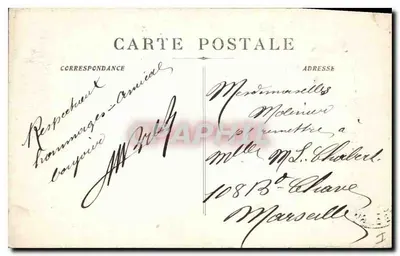 CARTE POSTALE
CORRESPONDANCE
ADRESSE
Respectueux
hommages - amical
bonjour
Mesdemoiselles
Molinier
à
Mlle M. L. Chabert
108 Bd Chave
Marseille